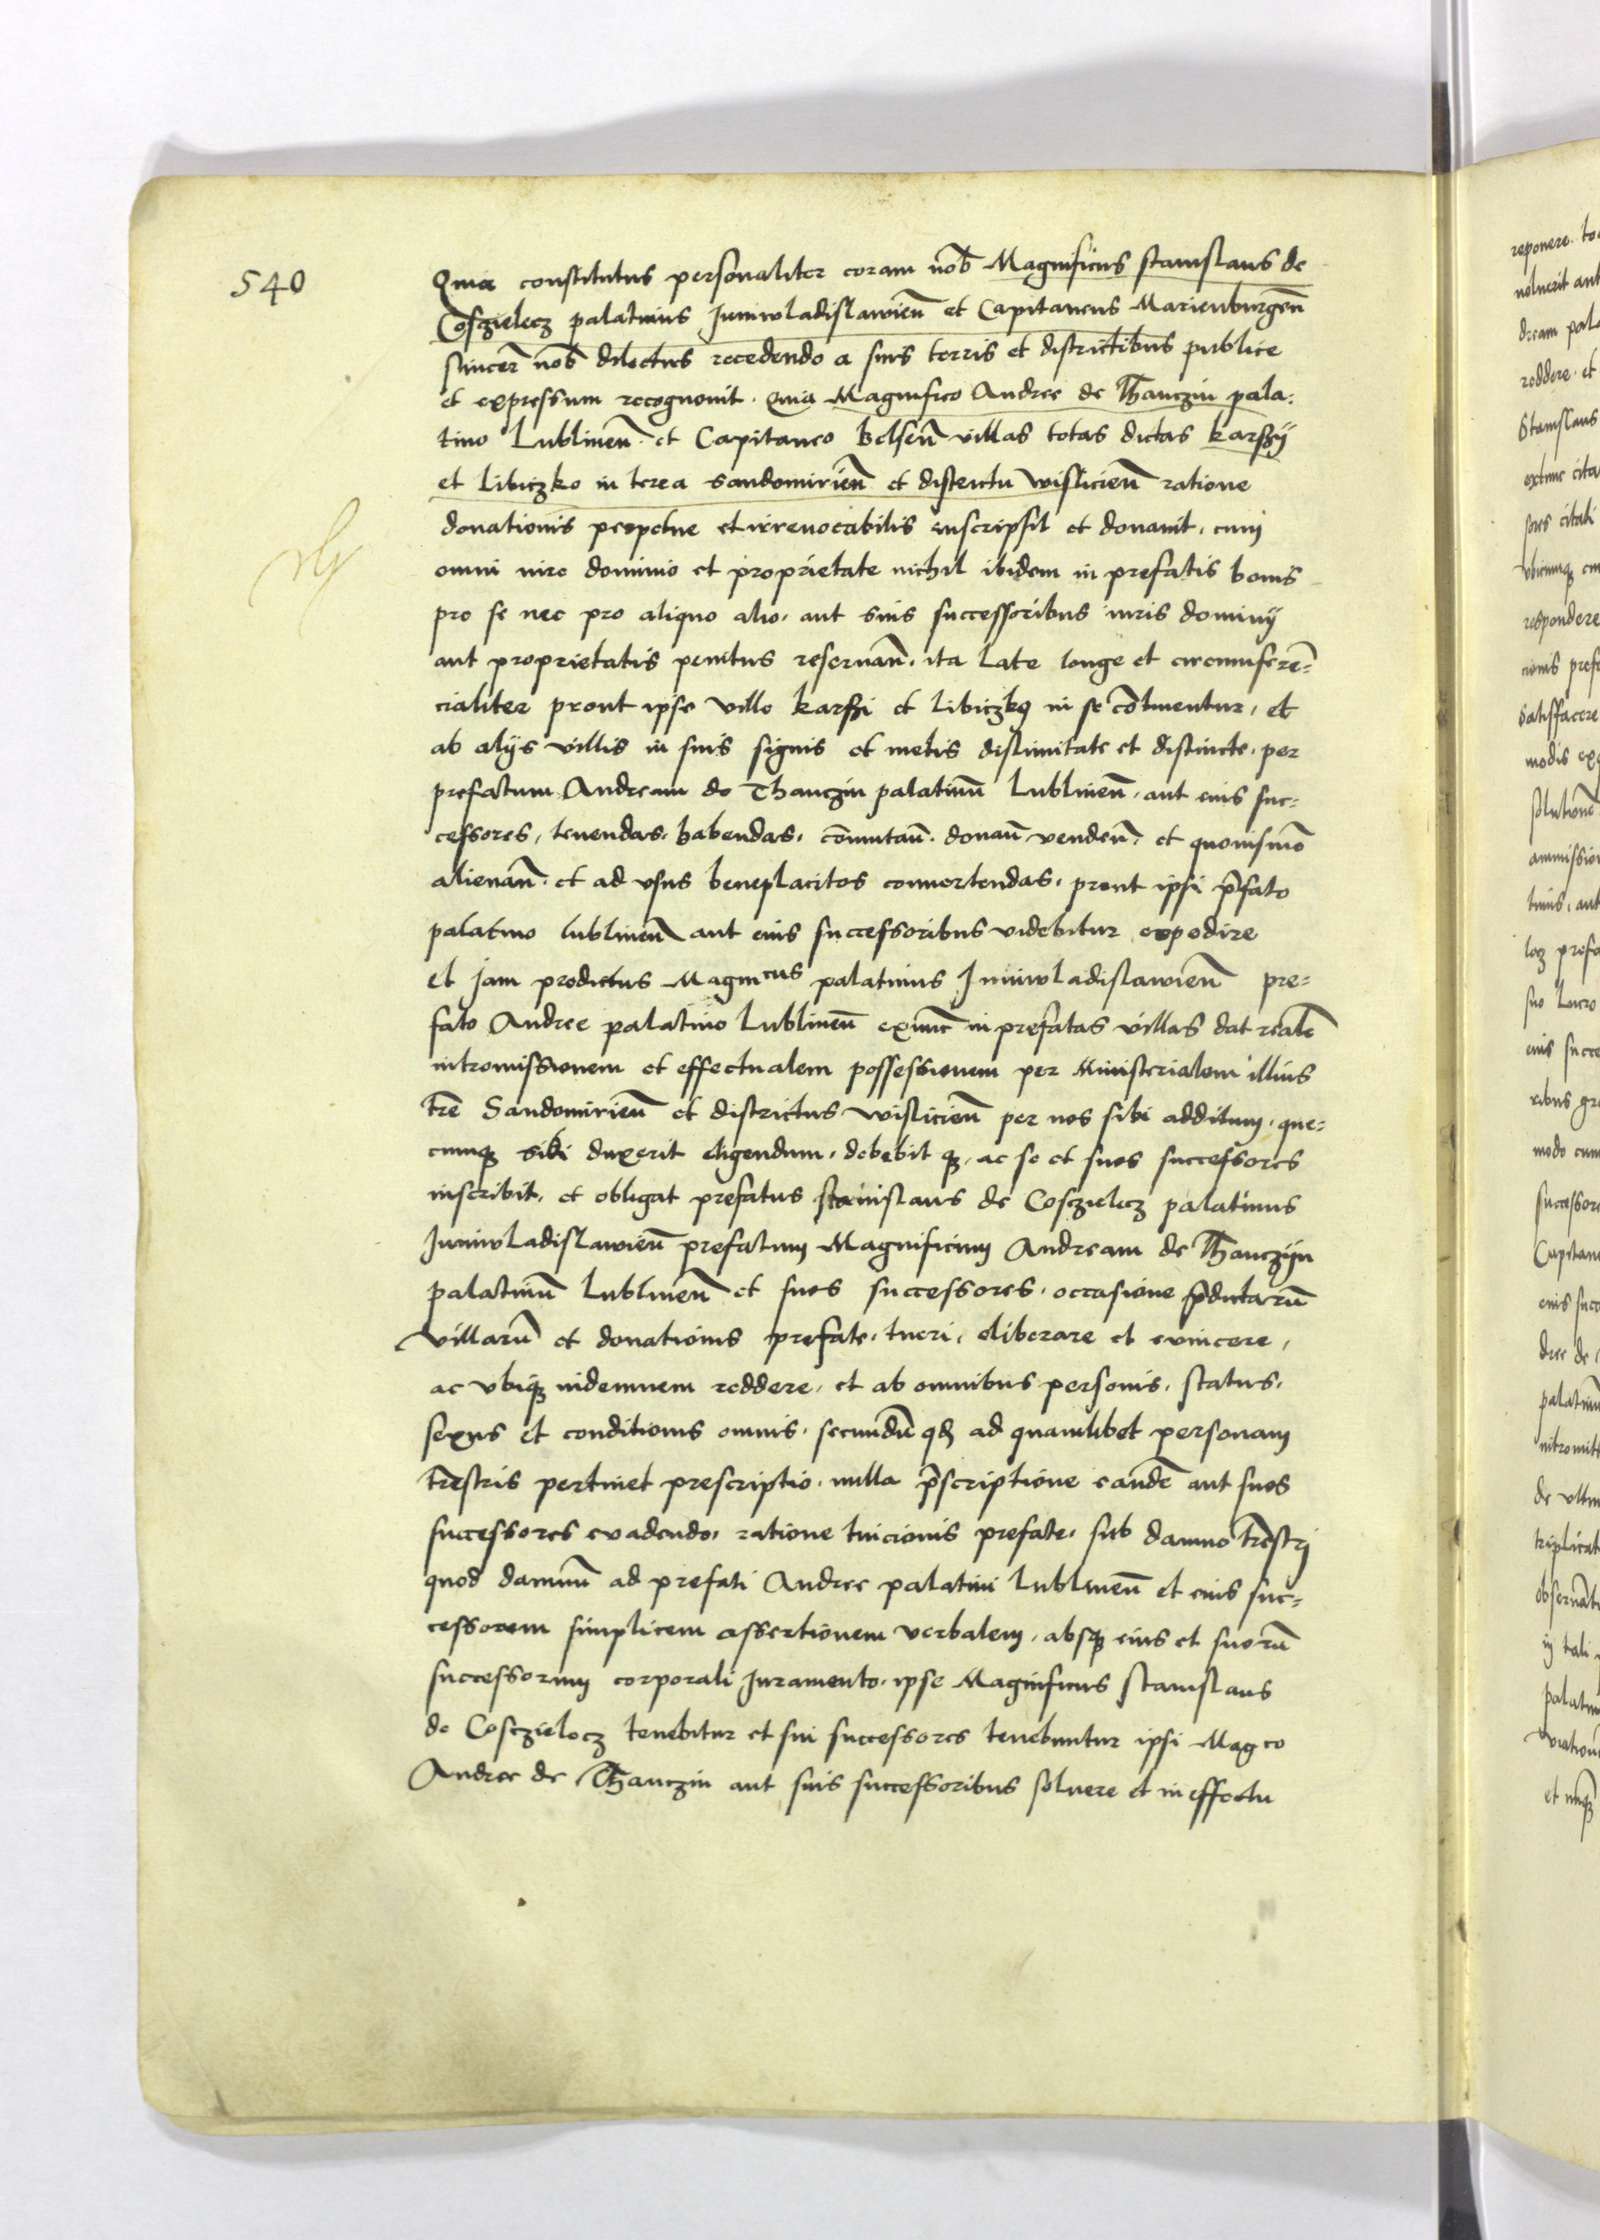 540
Quia constitutus personaliter coram nob̄ Magnificus stanislaus de
Cosczielecz palatinus Juniwladislawien̄ et Capitaneus Marienburgen̄
sincer̄ nob̄ dilectus recedendo a suis terris et districtibus publice
et expressum recognovit. Quia Magnifico Andree de Thanczin pala-
tino Lublinen̄. et Capitaneo Belsen̄ villas totas dictas karssÿ
et Libiczko in terra sandomirien̄ et districtu wislicien̄ ratione
donationis perpetue et irrevocabilis inscripsit et donavit, cum
omni iure dominio et proprietate nichil ibidem in prefatis bonis
pro se nec pro aliquo alio, aut suis successoribus iuris dominÿ
aut proprietatis penitus reservan̄, ita late longe et circumferē-
cialiter prout ipse ville karssi et Libiczko in se cōtinentur, et
ab alÿs villis in suis signis et metis dislimitate et distincte, per
prefatum Andream de Thanczin palatinū Lublinen̄, aut eius suc-
cessores, tenendas, habendas, cōmutan̄. donan̄ venden̄, et quovismō
alienan̄. et ad usus beneplacitos convertendas, prout ipsi p̄fato
palatino lublinen̄ aut eius successoribus videbitur expedire
et Jam predictus Magnicus palatinus Juniwladislawien̄ pre-
fato Andree palatino Lublinen̄ exnunc in prefatas villas dat realē
intromissionem et effectualem possessionem per Ministerialem illius
tr̄e Sandomirien̄ et districtus wislicien̄ per nos sibi additum, que-
cumqȝ sibi duxerit eligendum, debebit qȝ, ac se et suos successores
inscribit, et obligat prefatus stanislaus de Cosczielecz palatinus
Juniwladislawien̄ prefatum Magnificum Andream de Thanczÿn
palatinū Lublinen̄ et suos successores, occasione p̄dictarū
villarū et donationis prefate, tueri, eliberare et evincere,
ac ubiqȝ indemnem reddere, et ab omnibus personis, status,
sexus et conditionis omnis, secundū qd̄ ad quamlibet personam
tr̄estris pertinet prescriptio, nulla p̄scriptione eandē aut suos
successores evadendo, ratione tuicionis prefate, sub damno tr̄estri
quod damnū ad prefati Andree palatini Lublinen̄ et eius suc-
cessorem simplicem assertionem verbalem, absqȝ eius et suorū
successorum corporali Juramento, ipse Magnificus stanislaus
de Cosczielecz tenebitur et sui successores tenebuntur ipsi Magco
Andree de Thanczin aut suis successoribus solvere et in effectu